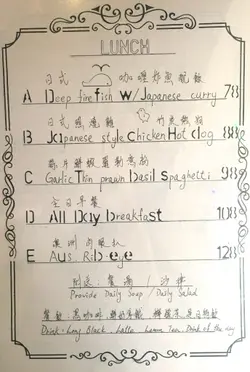 LUNCH
日式 咖喱炸魚飯
A Deep fire fish W/Japanese curry 78
日式 竹炭熱狗
B Japanese style Chicken Hot dog 88
蒜片鮮蝦羅勒意粉
C Garlic Thin prawn Basil Spaghetti 98
全日早餐
D All Day Breakfast 108
澳洲肉眼扒
E Aus. Rib-eye 128
附送 餐湯 / 沙律
Provide Daily Soup / Daily Salad
餐飲 黑咖啡
Drink: Long Black . Latte Lemon Tea. Drink of the day